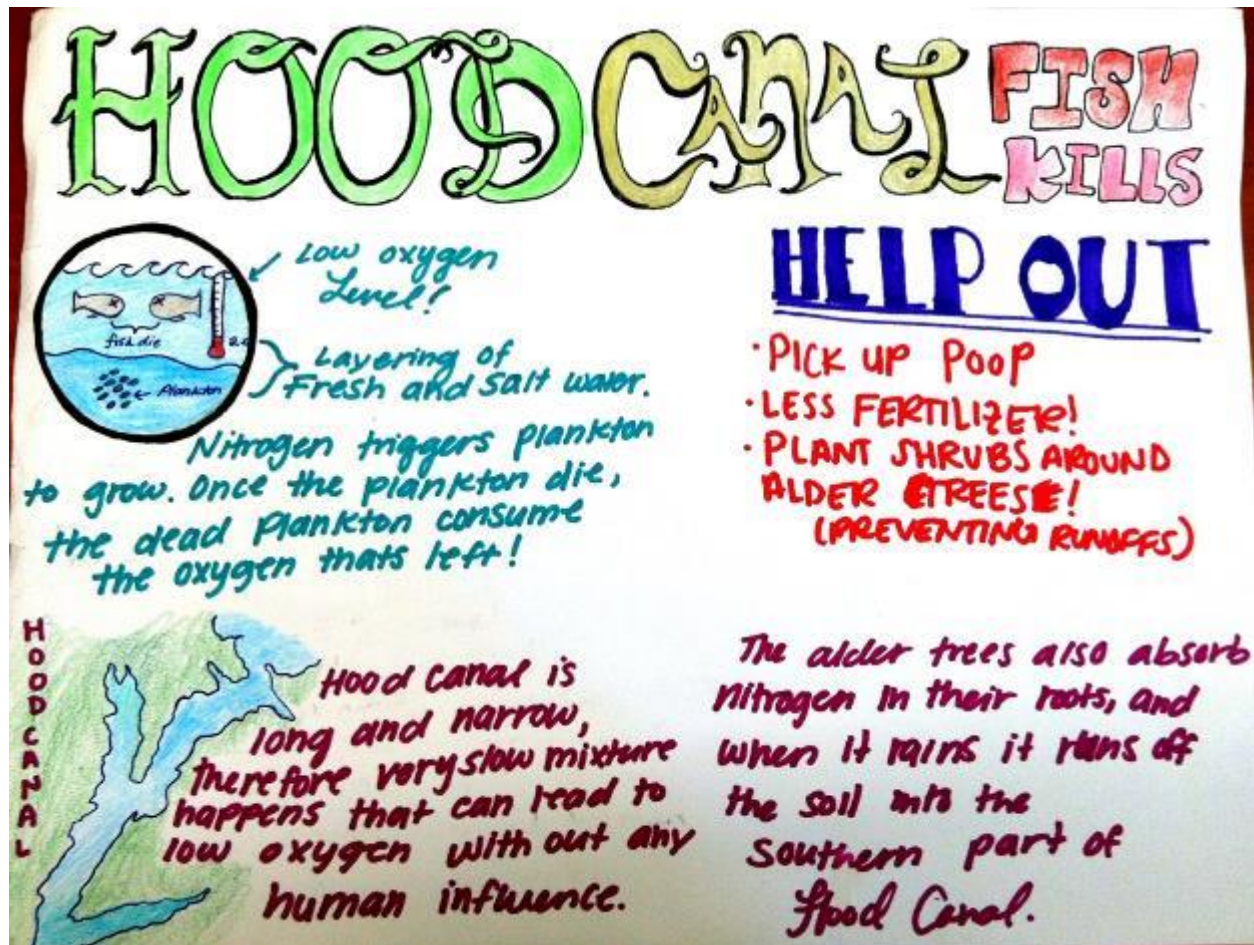 HOOD CANAL FISH
KILLS
Low oxygen
Level!
fish die
Plankton
Layering of
Fresh and Salt water.
Nitrogen triggers plankton
to grow. Once the plankton die,
the dead plankton consume
the oxygen thats left!
HELP OUT
• PICK UP POOP
• LESS FERTILIZER!
• PLANT SHRUBS AROUND
ALDER TREES!
(PREVENTING RUNOFFS)
HOOD CANAL
Hood Canal is
long and narrow,
therefore very slow mixture
happens that can lead to
low oxygen with out any
human influence.
The alder trees also absorb
nitrogen in their roots, and
when it rains it runs off
the soil into the
Southern part of
Hood Canal.